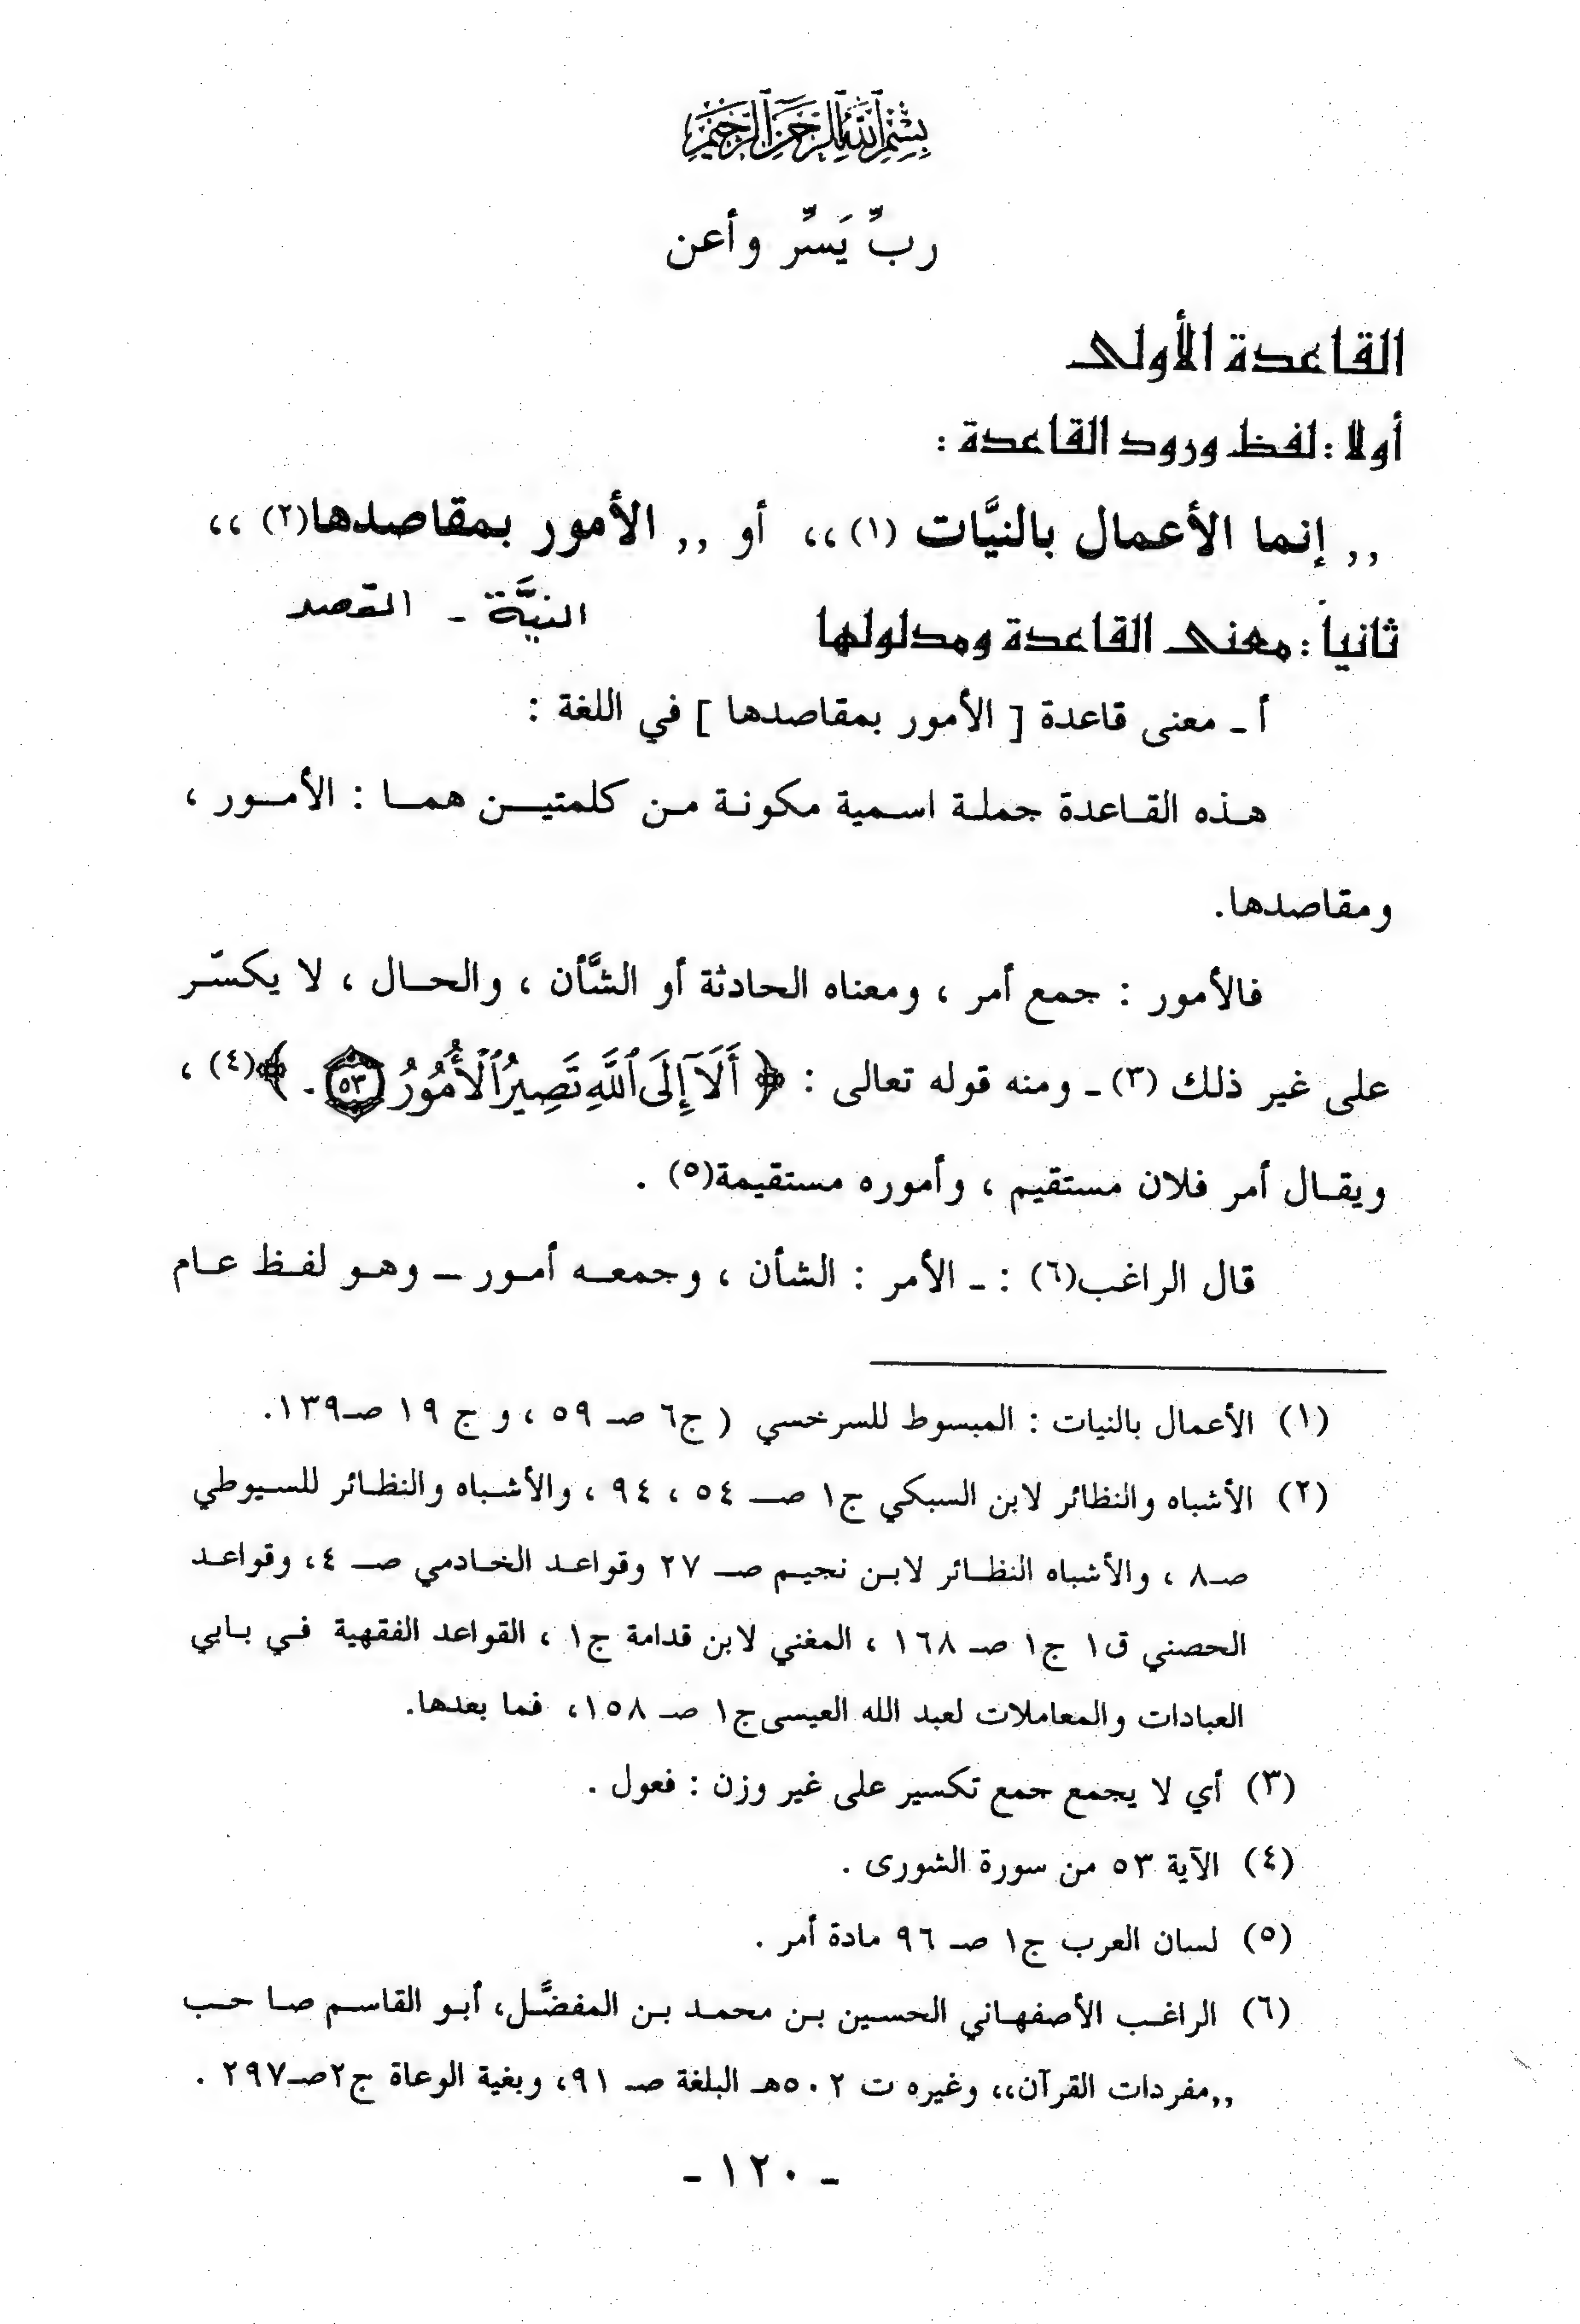 بِسْمِ اللَّهِ الرَّحْمَنِ الرَّحِيمِ
ربِّ يَسِّر وأعن
القاعدة الأولى
أولا : لفظ ورود القاعدة :
,, إنما الأعمال بالنيَّات (١) ،، أو ,, الأمور بمقاصدها(٢) ،،
النيَّة - القصد
ثانياً : معنى القاعدة ومدلولها
أ ـ معنى قاعدة [ الأمور بمقاصدها ] في اللغة :
هذه القاعدة جملة اسمية مكونة من كلمتين هما : الأمور ،
ومقاصدها.
فالأمور : جمع أمر ، ومعناه الحادثة أو الشَّأن ، والحال ، لا يكسّر
على غير ذلك (٣) ـ ومنه قوله تعالى : ﴿ أَلَآ إِلَى ٱللَّهِ تَصِيرُ ٱلْأُمُورُ ٥٣ . ﴾(٤) ،
ويقال أمر فلان مستقيم ، وأموره مستقيمة(٥) .
قال الراغب(٦) : ـ الأمر : الشأن ، وجمعه أمور ــ وهو لفظ عام
(١) الأعمال بالنيات : المبسوط للسرخسي ( ج٦ صـ ٥٩ ، و ج ١٩ صـ١٣٩.
(٢) الأشباه والنظائر لابن السبكي ج١ صـ ٥٤ ، ٩٤ ، والأشباه والنظائر للسيوطي
صـ٨ ، والأشباه النظائر لابن نجيم صـ ٢٧ وقواعد الخادمي صـ ٤، وقواعد
الحصني ق١ ج١ صـ ١٦٨ ، المغني لابن قدامة ج١ ، القواعد الفقهية في بابي
العبادات والمعاملات لعبد الله العيسى ج١ صـ ١٥٨، فما بعدها.
(٣) أي لا يجمع جمع تكسير على غير وزن : فعول .
(٤) الآية ٥٣ من سورة الشورى .
(٥) لسان العرب ج١ صـ ٩٦ مادة أمر .
(٦) الراغب الأصفهاني الحسين بن محمد بن المفضَّل، أبو القاسم صاحب
,,مفردات القرآن،، وغيره ت ٥٠٢هـ البلغة صـ ٩١، وبغية الوعاة ج٢صـ٢٩٧ .
- ١٢٠ -